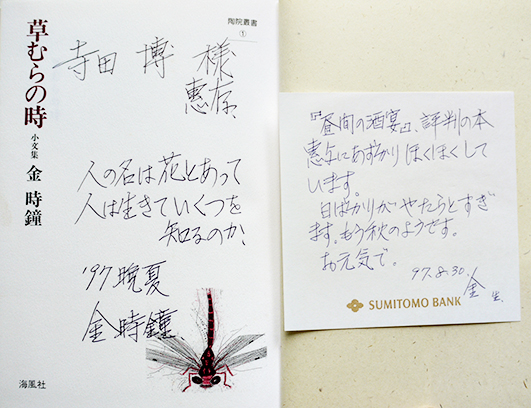 陶院叢書
①
草むらの時
小文集
金時鐘
寺田 博 様
恵存、
人の名は花とあって
人は生きていくつを
知るのか、
'97晩夏
金時鐘
海風社
『昼間の酒宴』、評判の本
恵与にあずかりほくほくして
います。
日ばかりがやたらとすぎ
ます。もう秋のようです。
お元気で。
97.8.30.
金 生
SUMITOMO BANK